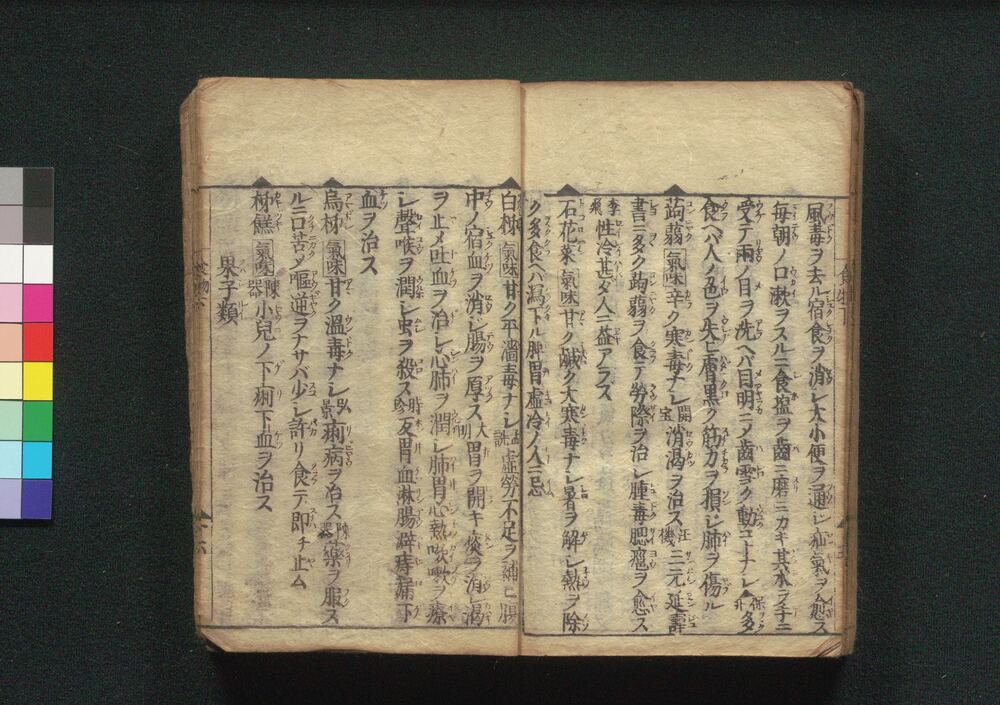 風毒ヲ去ル宿食ヲ消シ大小便ヲ通シ疝氣ヲ愈ス
毎朝ノ口漱ヲスルニ食塩ヲ齒ニ磨ニカギ其水ヲ手ニ
受テ兩ノ目ヲ洗ヘバ目明ニメ齒雪ク動コトナシ 多
食ヘバ人ノ色ヲ失ヒ膚黒ク筋力ヲ損シ肺ヲ傷ル
蒟蒻 氣味辛ク寒毒ナシ 開宝 消渇ヲ治ス 汪機 三元延壽
書ニ多ク蒟蒻ヲ食テ勞瘵ヲ治シ腫毒腮癰ヲ愈ス
性冷甚ダ人ニ益アラズ
石花菜 氣味甘ク鹹ク大寒毒ナシ暑ヲ解シ熱ヲ除
ク多食ヘバ瀉下ル脾胃虚冷ノ人ニ忌
白柹 氣味甘ク平濇毒ナシ 孟詵 虚勞不足ヲ補ヒ腹
中ノ宿血ヲ消シ腸ヲ厚ス 大明 胃ヲ開キ痰ヲ消渇
ヲ止メ吐血ヲ治シ心肺ヲ潤シ肺胃心熱咳嗽ヲ療
シ聲喉ヲ潤シ虫ヲ殺ス 時珍 反胃血淋腸澼痔漏下
血ヲ治ス
烏柹 氣味甘ク溫毒ナシ 弘景 痢病ヲ治ス 陳器 藥ヲ服ス
ルニ口苦メ嘔逆ヲナサバ少シ許リ食テ即チ止ム
柹餻 氣味 陳器 小兒ノ下痢下血ヲ治ス
果子類